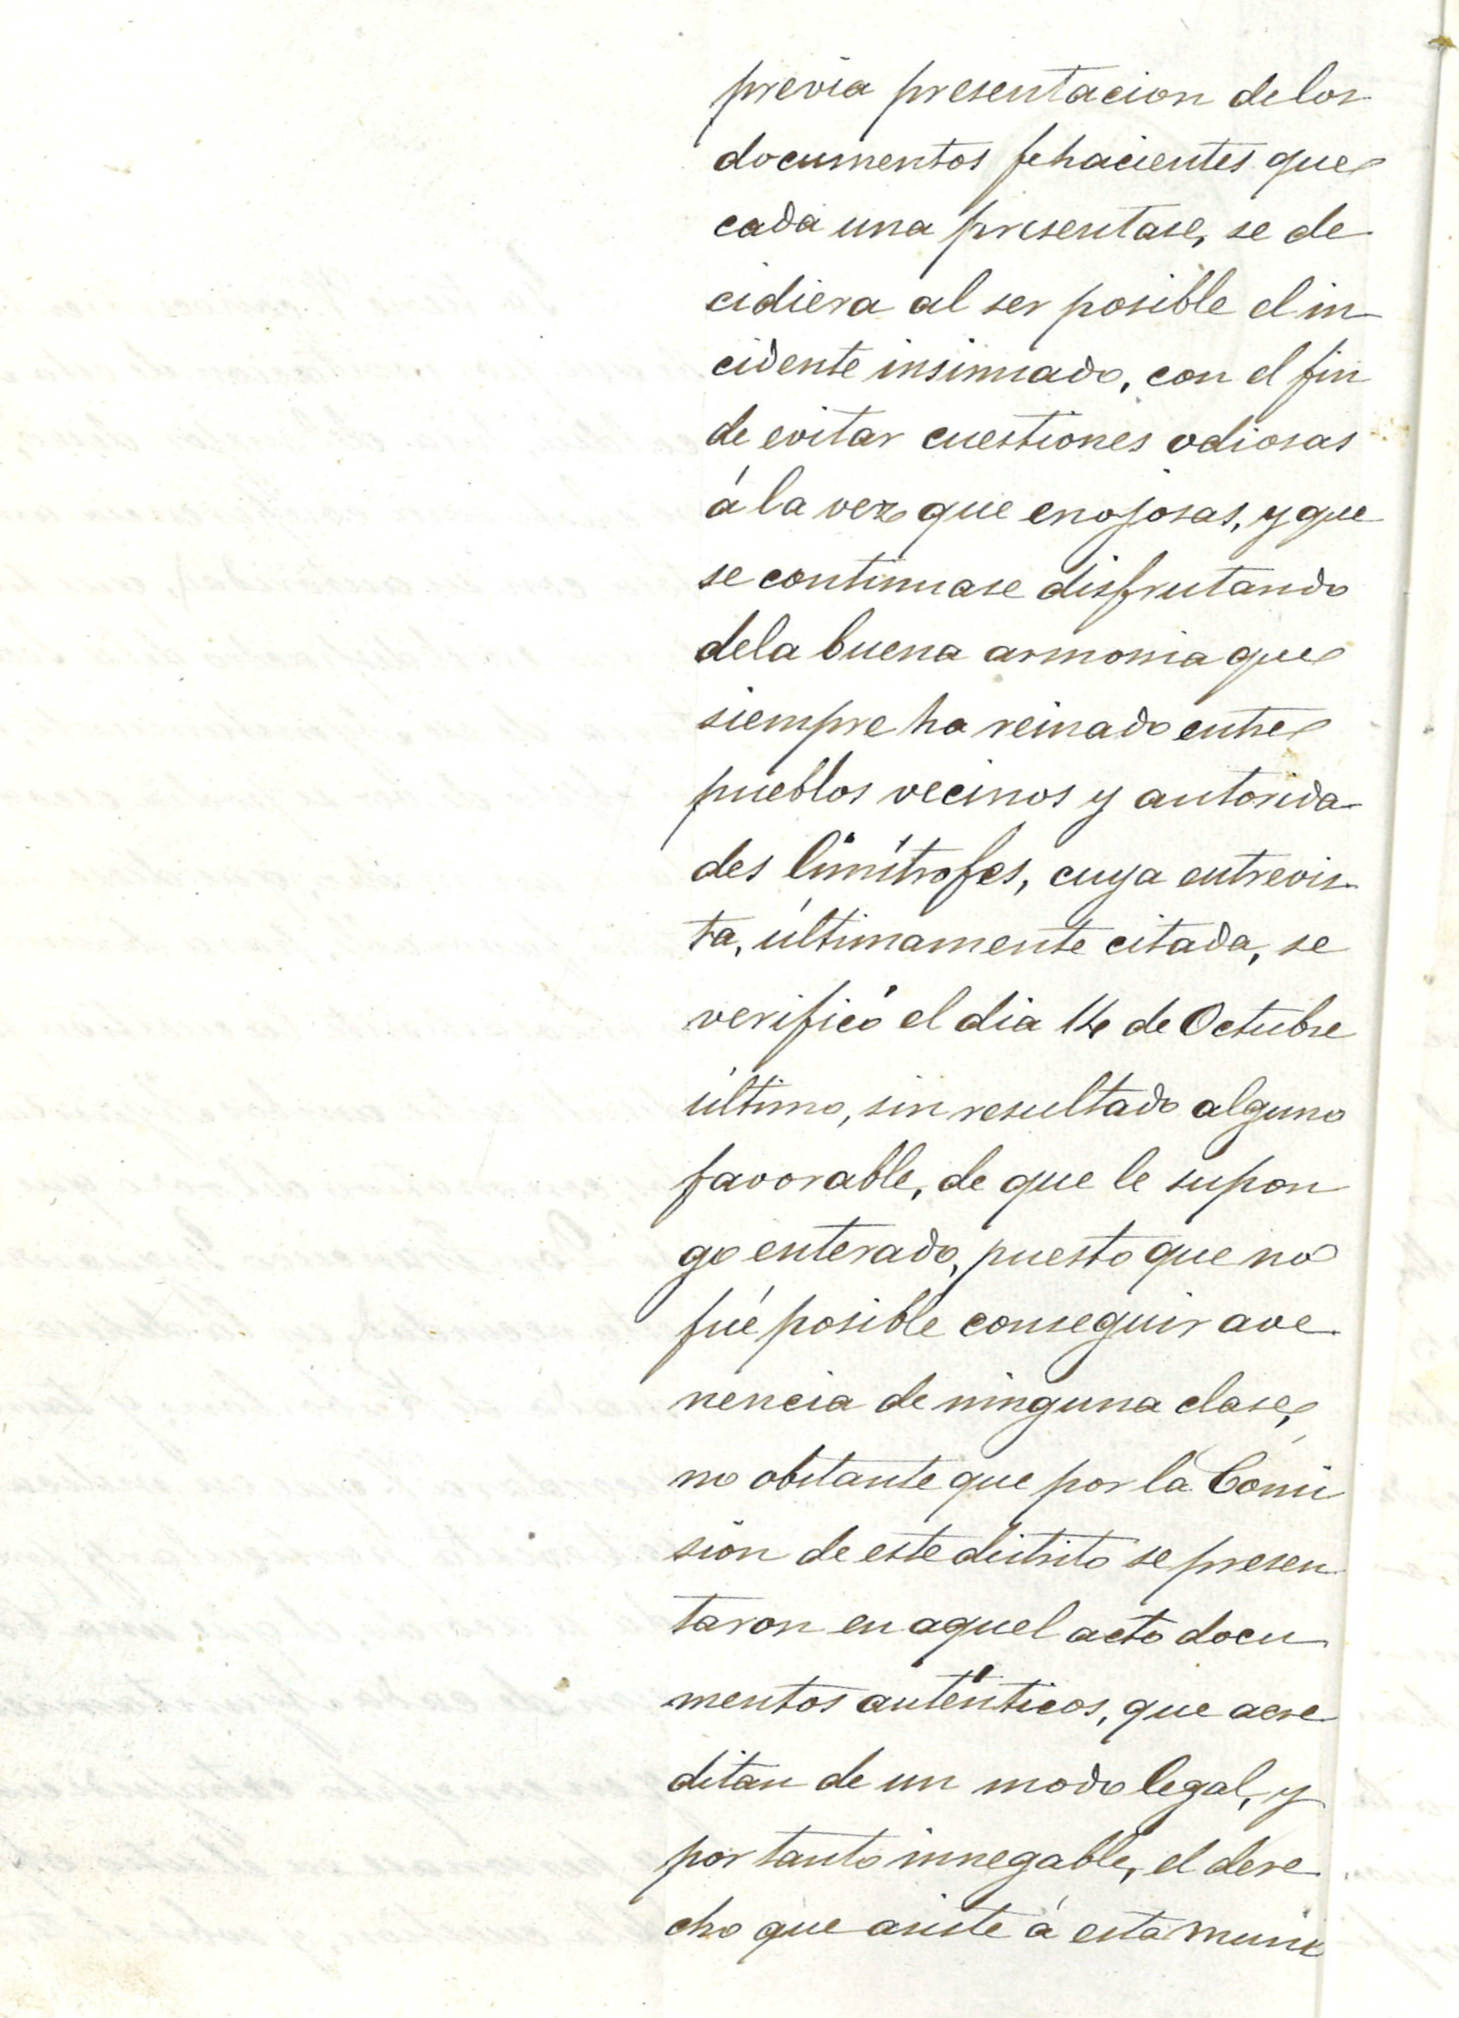 previa presentacion de los
documentos fehacientes que
cada una presentase, se de
cidiera al ser posible el in-
cidente insinuado, con el fin
de evitar cuestiones odiosas
á la vez que enojosas, y que
se continuase disfrutando
dela buena armonia que
siempre ha reinado entre
pueblos vecinos y autorida-
des limítrofes, cuya entrevis-
ta, últimamente citada, se
verificó el dia 14 de Octubre
último, sin resultado alguno
favorable, de que le supon
go enterado, puesto que no
fué posible conseguir ave-
nencia de ninguna clase,
no obstante que por la Comi
sión de este distrito se presen-
taron en aquel acto docu-
mentos auténticos, que acre-
ditan de un modo legal, y
por tanto innegable, el dere-
cho que asiste á esta muni